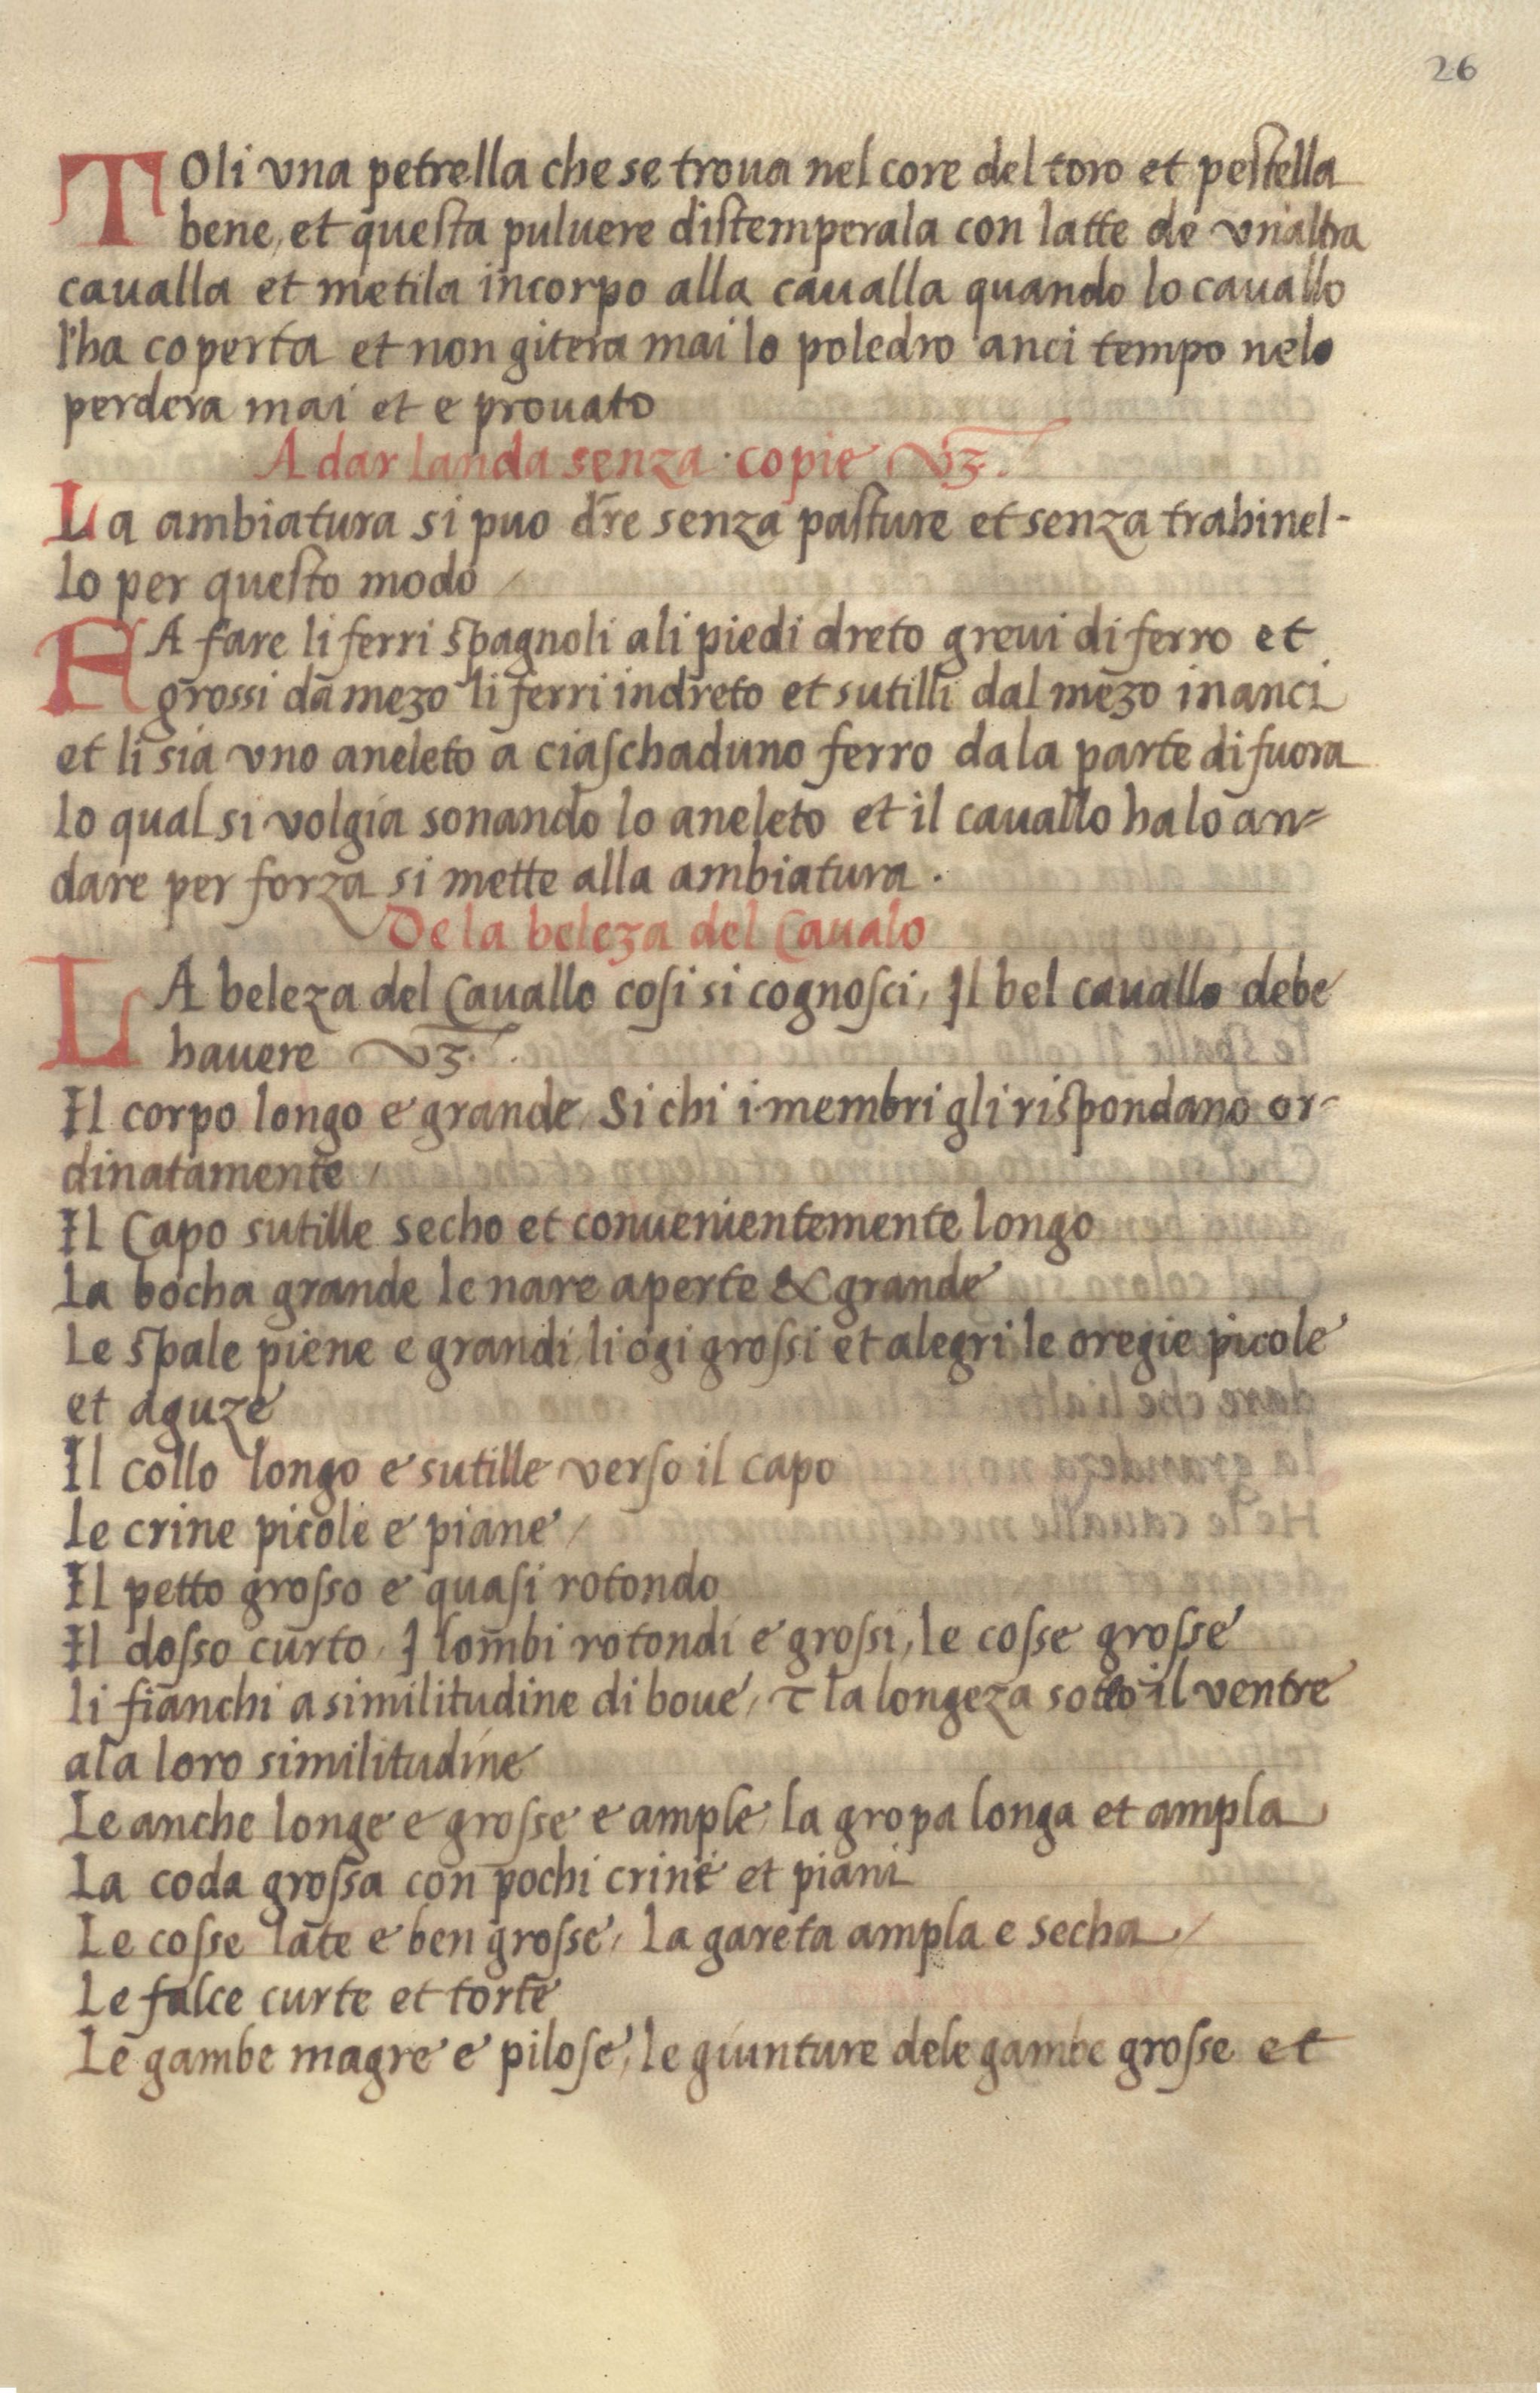 26
TOli vna petrella che se troua nel core del toro et peſtella
bene, et queſta puluere diſtemperala con latte de vn'altra
caualla et metila incorpo alla caualla quando lo cauallo
l'ha coperta et non gitera mai lo poledro anci tempo nelo
perdera mai et e prouato
A dar landa senza copie vꝫ.
La ambiatura si puo dr̄e senza paſture et senza trahinel-
lo per queſto modo /
FA fare li ferri spagnoli ali piedi dreto greui di ferro et
grossi da mezo li ferri indreto et sutilli dal mezo inanci
et li sia vno aneleto a ciaſchaduno ferro da la parte di fuora
lo qual si volgia sonando lo aneleto et il cauallo ha lo an=
dare per forza si mette alla ambiatura.
De la beleza del Caualo
LA beleza del Cauallo coſi si cognoſci, Il bel cauallo debe
hauere vꝫ.
Il corpo longo e grande, Si chi i membri gli rispondano or-
dinatamente /
Il Capo sutille secho et conuenientemente longo
La bocha grande le nare aperte & grande
Le spale piene e grandi, li ogi groſsi et alegri le oregie picole
et aguze
Il collo longo e sutille verſo il capo
Le crine picole e piane /
Il petto groſso e quaſi rotondo
Il doſso curto, I lombi rotondi e groſsi, le coſse groſse
li fianchi a similitudine di boue, τ la longeza sotto il ventre
ala loro similitudine
Le anche longe e groſse e ample, la gropa longa et ampla
La coda groſsa con pochi crine et piani
Le coſse late e ben groſse, la gareta ampla e secha /
Le falce curte et torte
Le gambe magre e piloſe, le giunture dele gambe groſse et